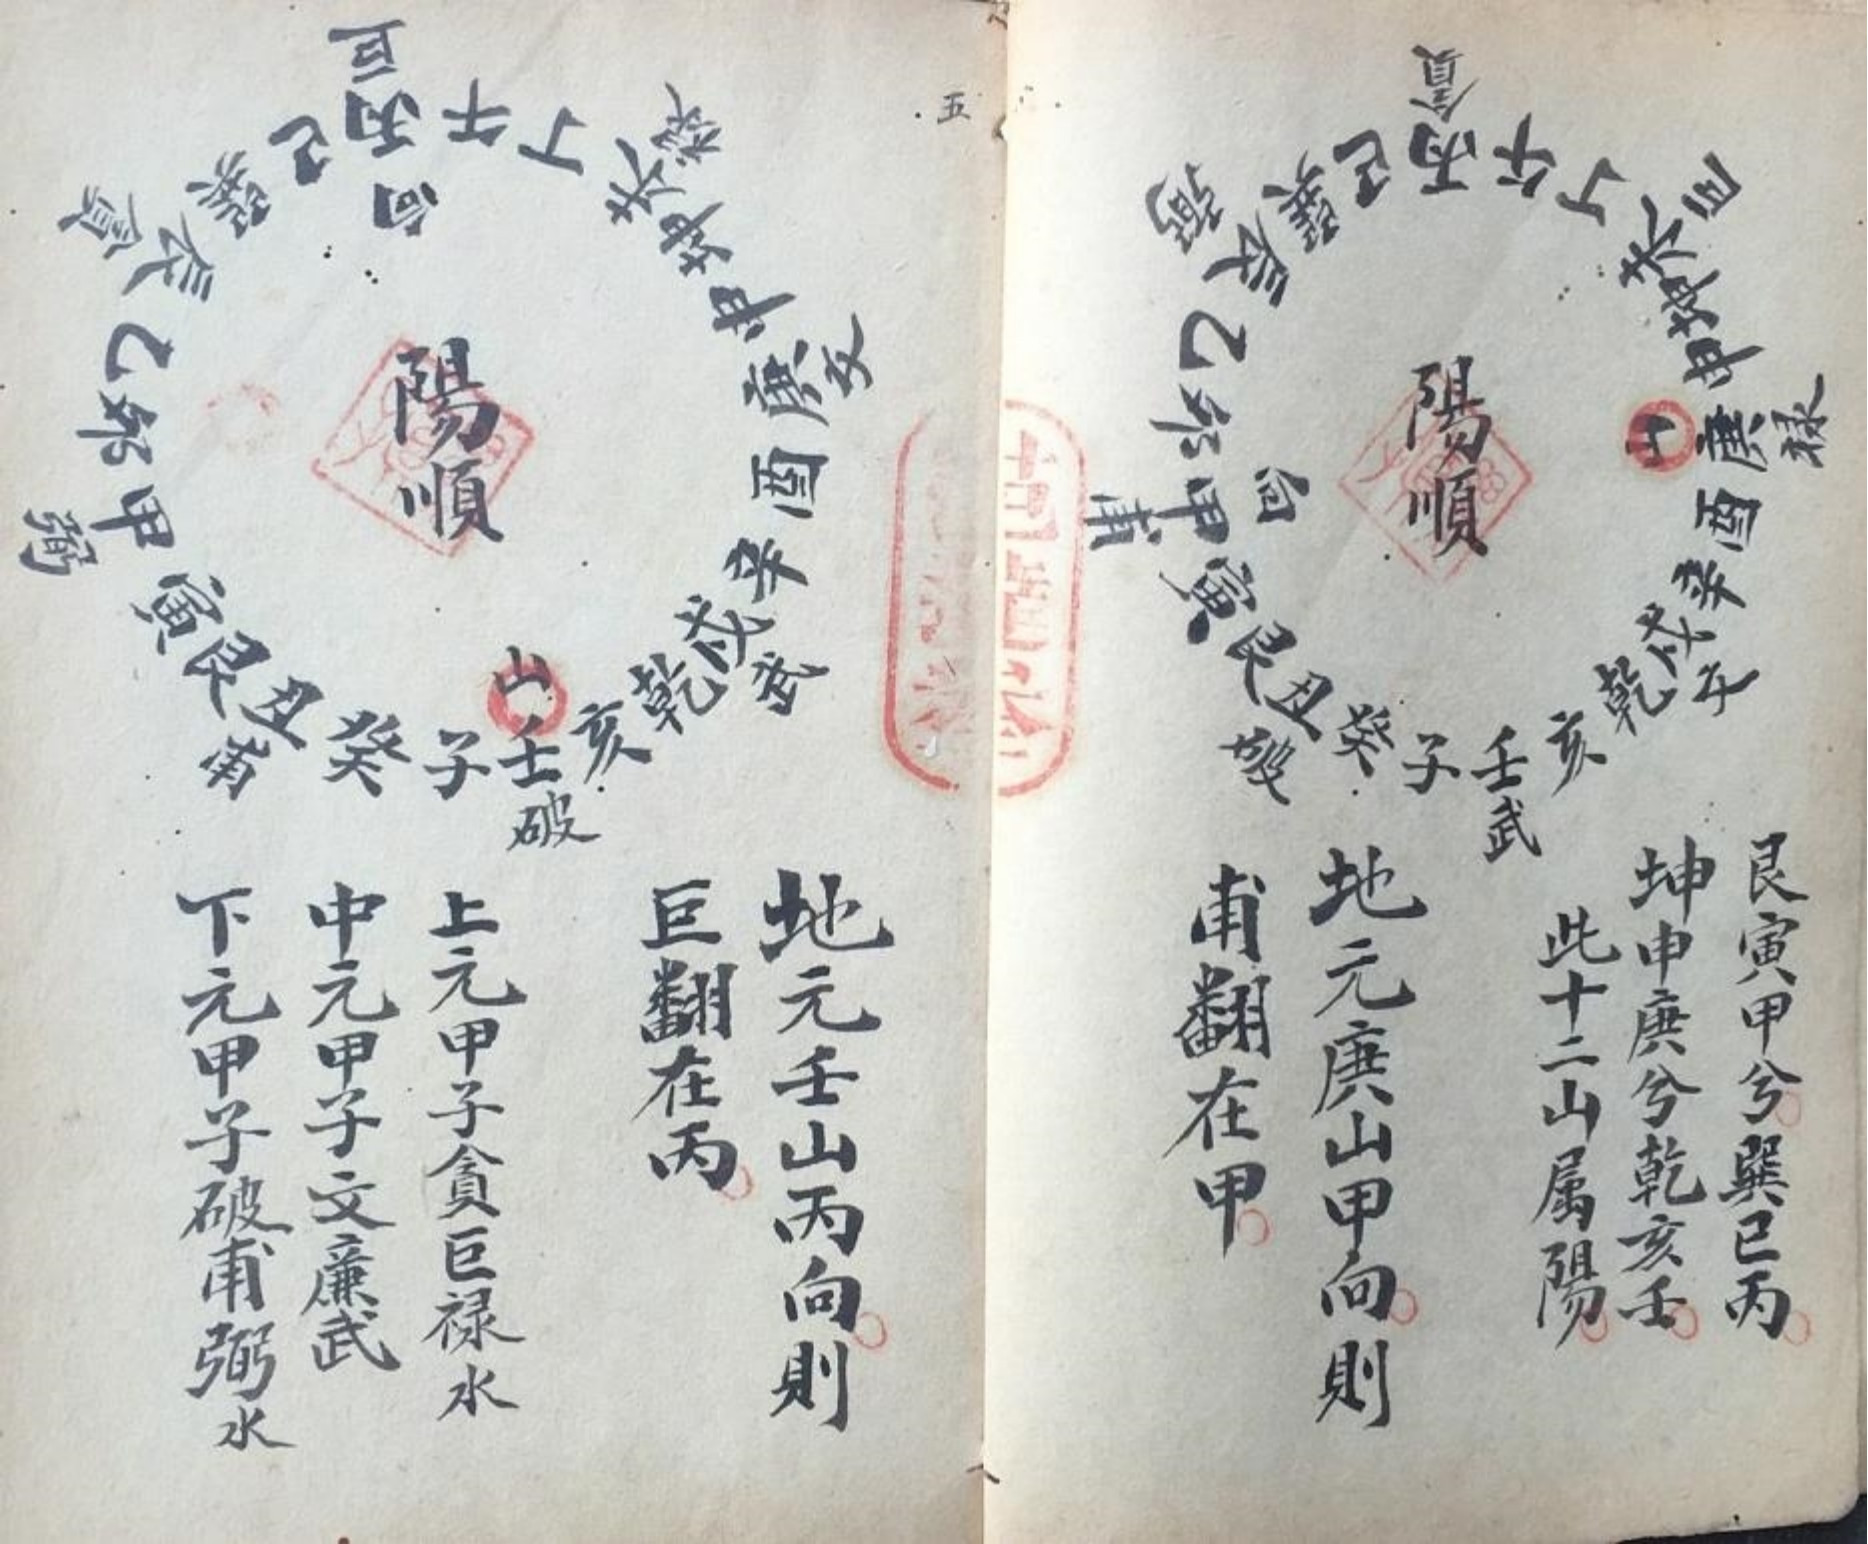 艮寅甲兮巽巳丙
坤申庚兮乾亥壬
此十二山属陽
地元庚山甲向則
甫翻在甲
陽順
山
向
丙午丁未坤申庚酉辛戌乾亥壬子癸丑艮寅甲卯乙辰巽巳
貪
巨
禄
文
武
破
甫
弼
五
地元壬山丙向則
巨翻在丙
上元甲子貪巨禄水
中元甲子文廉武
下元甲子破甫弼水
陽順
山
向
丙午丁未坤申庚酉辛戌乾亥壬子癸丑艮寅甲卯乙辰巽巳
巨
禄
文
武
破
甫
弼
貪